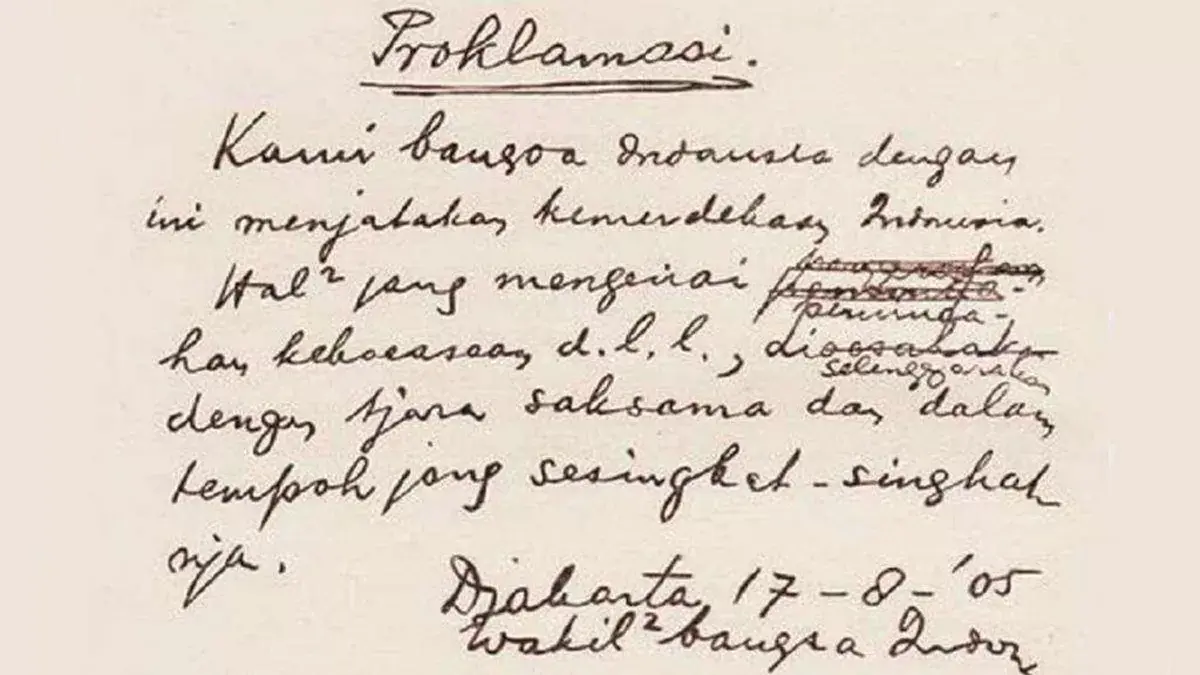 Proklamasi.
Kami bangsa Indonesia dengan
ini menjatakan kemerdekaan Indonesia.
Hal² jang mengenai
peminda-
han kekoeasaan, d.l.l., dioesahakan
selenggarakan
dengan tjara saksama dan dalam
tempoh jang sesingkat-singkat
nja.
Djakarta, 17-8-'05
Wakil² bangsa Indon